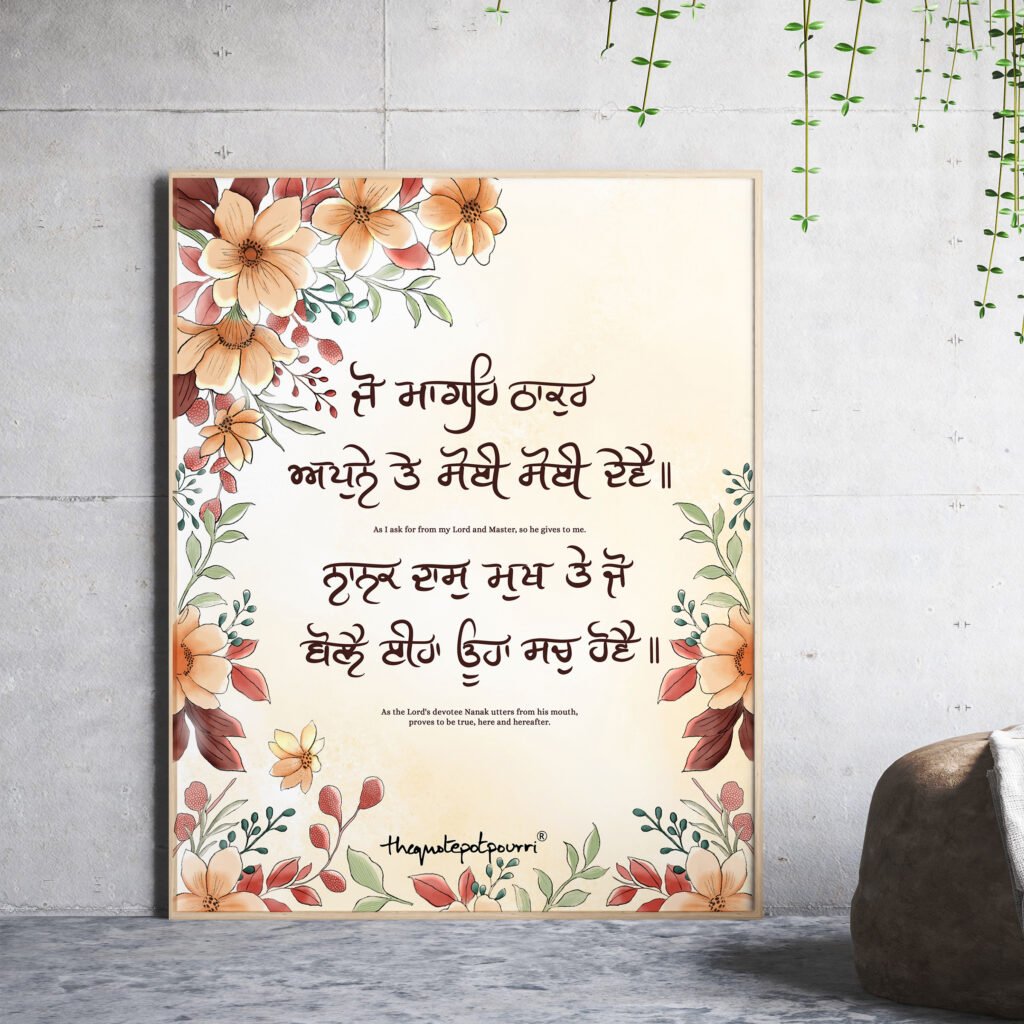 ਜੋ ਮਾਗਹਿ ਠਾਕੁਰ
ਅਪੁਨੇ ਤੇ ਸੋਈ ਸੋਈ ਦੇਵੈ॥
As I ask for from my Lord and Master, so he gives to me.
ਨਾਨਕ ਦਾਸੁ ਮੁਖ ਤੇ ਜੋ
ਬੋਲੈ ਈਹਾ ਊਹਾ ਸਚੁ ਹੋਵੈ॥
As the Lord's devotee Nanak utters from his mouth,
proves to be true, here and hereafter.
thequotepotpourri®